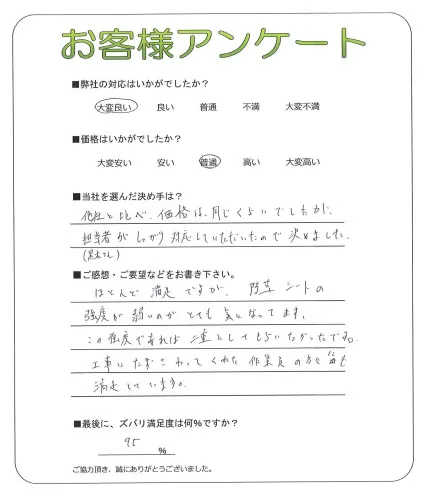 お客様アンケート
■弊社の対応はいかがでしたか？
大変良い 良い 普通 不満 大変不満
■価格はいかがでしたか？
大変安い 安い 普通 高い 大変高い
■当社を選んだ決め手は？
他社と比べ、価格は、同じくらいでしたが、
担当者がしっかり対応していただいたので決めました。
(黒木さん)
■ご感想・ご要望などをお書き下さい。
ほとんど満足ですが、防草シートの
強度が弱いのがとても気になってます。
この強度であれば二重としてもらいたかったです。
工事にたずさわってくれた作業員の方々にも
満足しています。
■最後に、ズバリ満足度は何％ですか？
95 ％
ご協力頂き、誠にありがとうございました。